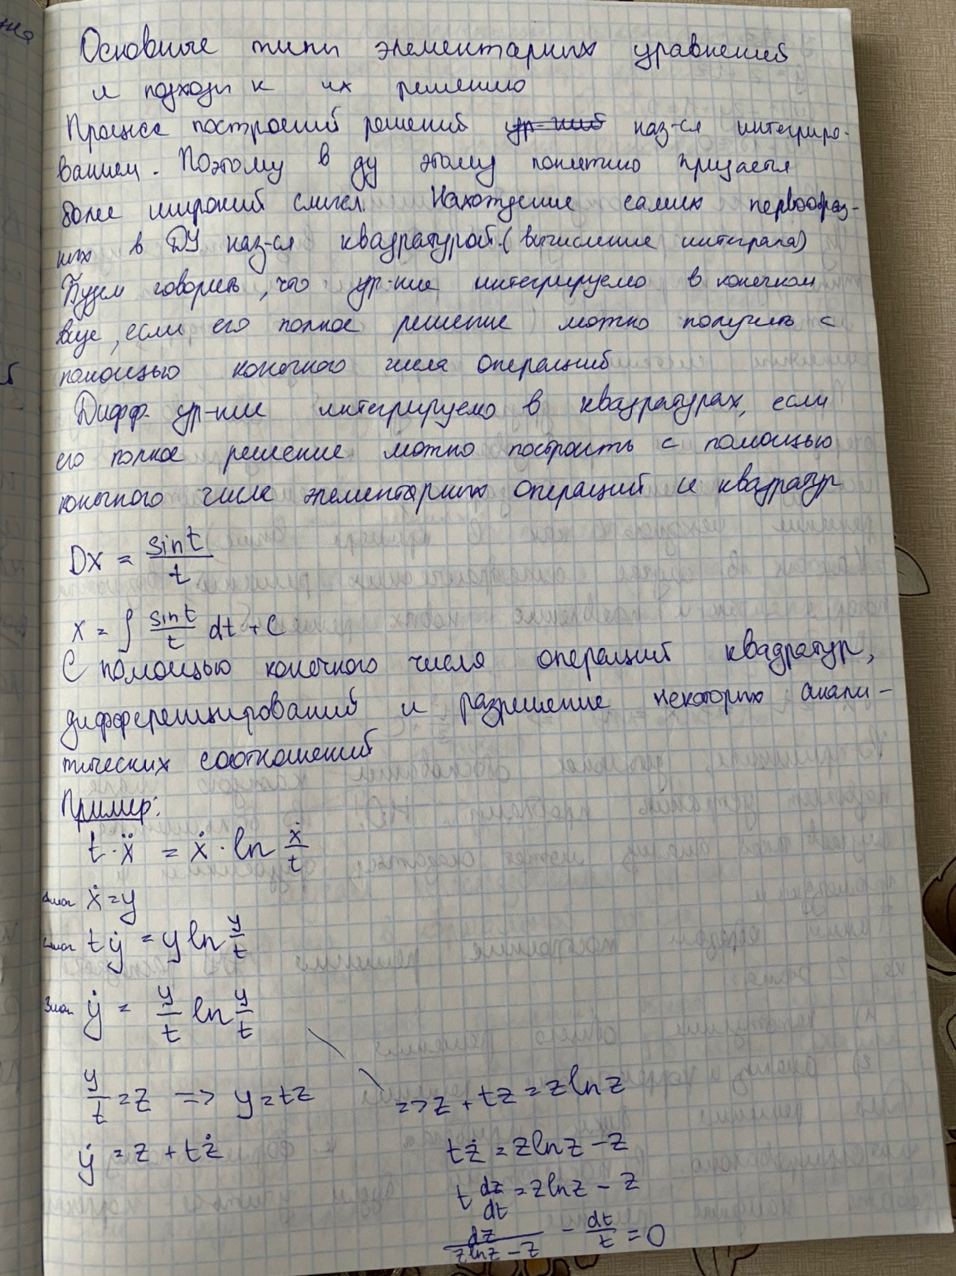 Основные типы элементарных уравнений
и подходы к их решению
Процесс построений решений ур-ний наз-ся интегриро-
ванием. Поэтому в ду этому понятию придается
более широкий смысл. Нахождение самих первообраз-
ных в ДУ наз-ся квадратурой. (вычисление интеграла)
Будем говорить, что ур-ние интегрируемо в конечном
виде, если его полное решение можно получить с
помощью конечного числа операций
Дифф. ур-ние интегрируемо в квадратурах, если
его полное решение можно построить с помощью
конечного числа элементарных операций и квадратур
Dx = sint/t
x = ∫ sint/t dt + C
С помощью конечного числа операций квадратур,
дифференцирований и разрешение некоторых анали-
тических соотношений
Пример:
t·ẍ = ẋ·ln ẋ/t
ẋ=y
tẏ = y ln y/t
3шаг ẏ = y/t ln y/t
y/t = z => y=tz
ẏ = z + tż
=> z + tz = z ln z
tż = z ln z – z
t dz/dt = z ln z – z
dz/(z ln z – z) – dt/t = 0